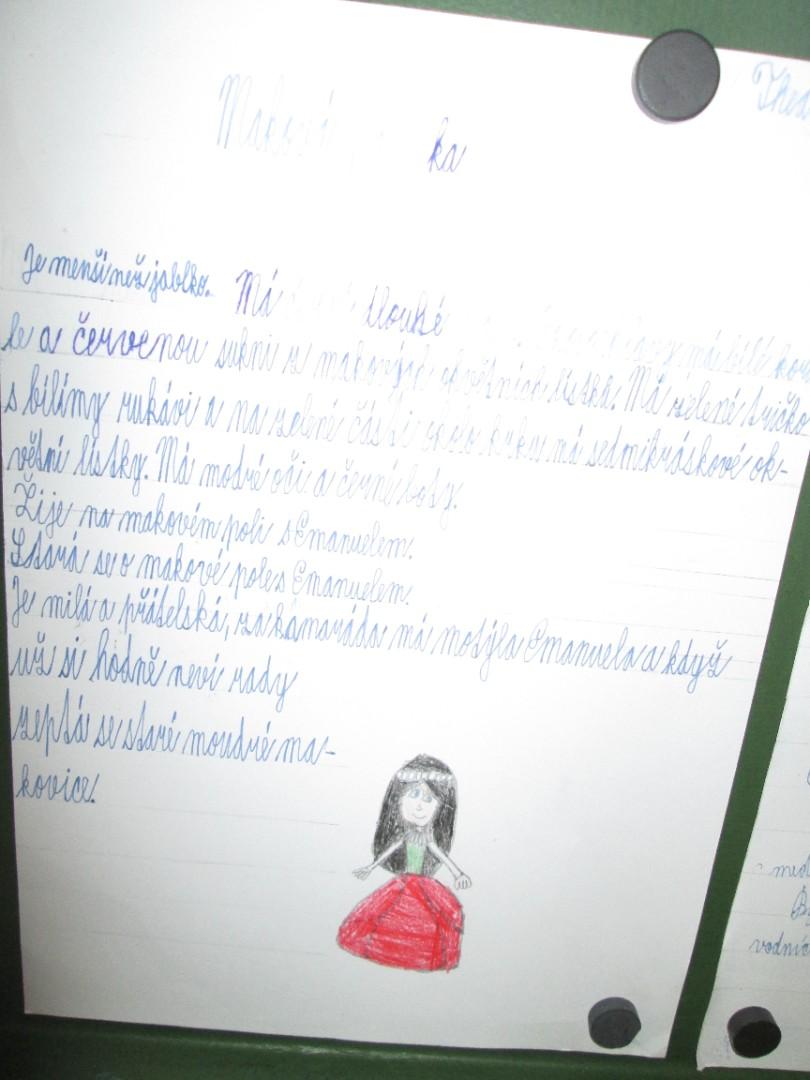 Thea
Maková ka
Je menší než jablko. Má dlouhé má bílé kor
le a červenou sukni z makových okvětních lístků. Má zelené tričko
s bílími rukávi a na zelené části okolo krku má sedmikráskové ok-
větní lístky. Má modré oči a černé boty.
Žije na makovém poli s Emanuelem.
Stará se o makové pole s Emanuelem.
Je milá a přátelská, za kamaráda má motýla Emanuela a když
už si hodně neví rady
zeptá se staré moudré ma-
kovice.
vodníc